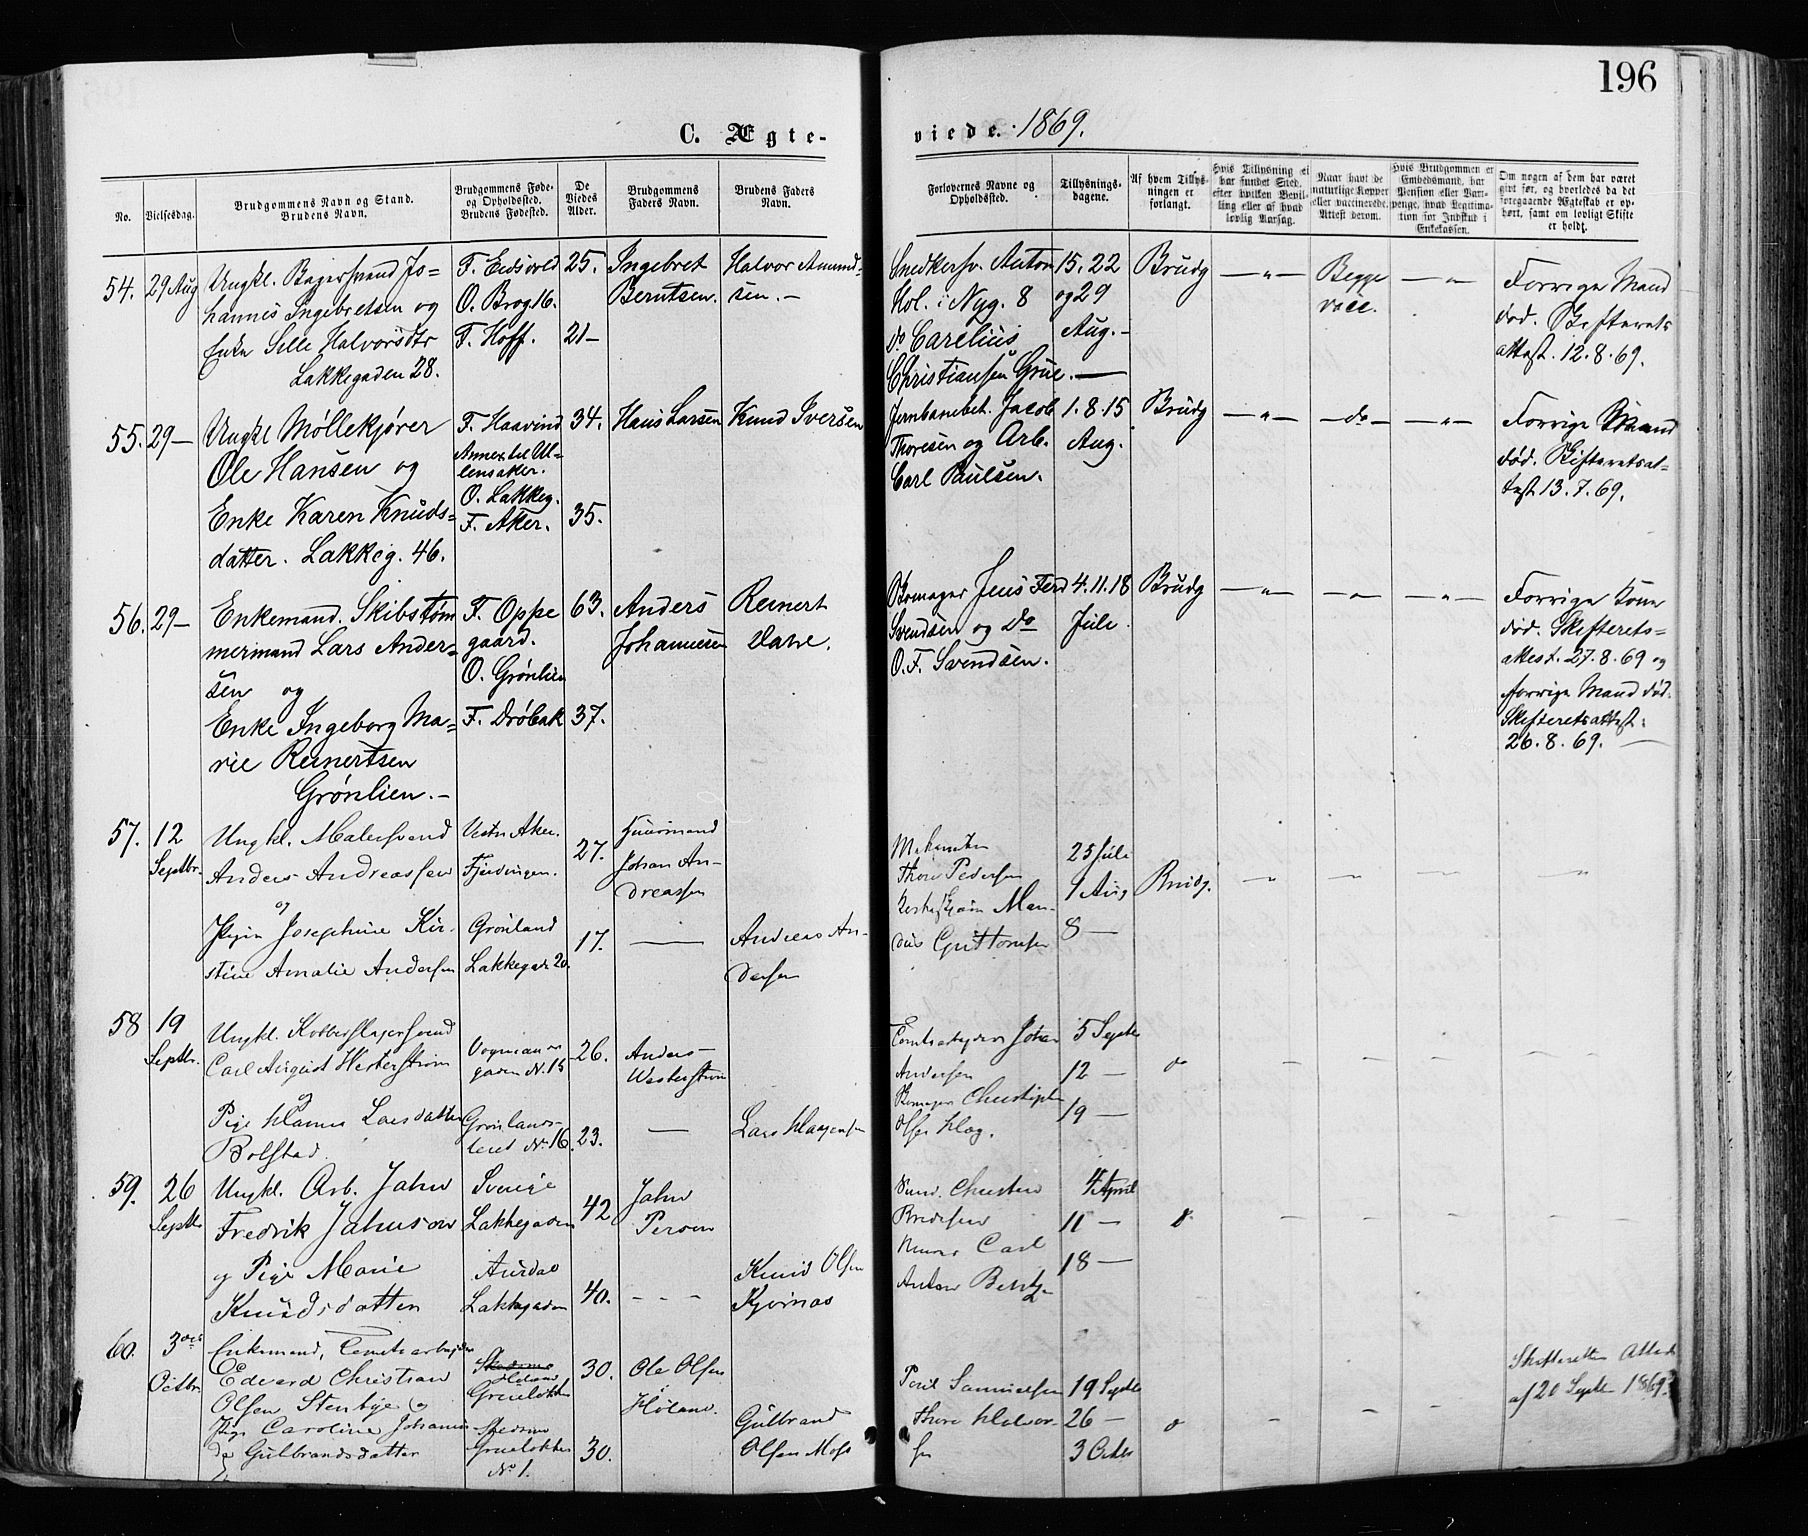 196
C. Ægte-
viede. 1869.
No.
Vielsesdag.
Brudgommens Navn og Stand.
Brudens Navn.
Brudgommens Føde-
og Opholdssted.
Brudens Fødested.
De
Viedes
Alder.
Brudgommens
Faders Navn.
Brudens Faders
Navn.
Forlovernes Navne og
Opholdssted.
Tillysnings-
dagene.
Af hvem Tillys-
ningen er
forlangt.
Hvis Tillysning ei
har fundet Sted,
efter hvilken Bevil-
ling eller af hvad
lovlig Aarsag.
Naar havt de
naturlige Kopper
eller vaccinerede.
Attest derom.
Hvis Brudgommen er
Embedsmand, har
Pension eller Var-
penge, hvad Legitima-
tion for Indskud i
Enkekassen.
Om nogen af dem har været
gift før, og hvorledes da det
foregaaende Ægteskab er op-
hørt, samt om lovligt Skifte
er holdt.
54. 29 Aug
Ungkl. Bagersvend Jo=
hannes Ingebretsen og
Enke Sille Halvorsdtr
Lakkegaden 28.
F. Eidsvold
O. Brog. 16.
F. Hoff.
25.
21-
Ingebret
Berntsen.
Halvor Amund-
sen. -
Snedkersv. Anton
Hol. i Nyg. 8
do Carelius
Christiansen Grue.
15. 22
og 29
Aug. -
Brudg
— „ —
Begge
vacc.
— „ —
Forrige Mand
død. Skifterets
attest. 12.8.69.
55. 29 —
Ungkl Møllekjører
Ole Hansen og
Enke Karen Knuds=
datter. Lakkeg. 46.
F. Haavind
Annex til Ul-
lensaker.
O. Lakkeg.
F. Aker.
34.
35.
Hans Larsen
Knud Iversen
Jernbanebet. Jacob
Thoresen og Arb.
Carl Paulsen.
1. 8. 15
Aug.
Brudg
— „ —
— do —
— „ —
Forrige Mand
død. Skifteretsat-
test 13.7.69.
56. 29 —
Enkemand. Skibstøm
mermand Lars Ander-
sen og
Enke Ingeborg Ma=
rie Reinertsen
Grønlien. -
F. Oppe
gaard.
O. Grønlien
F. Drøbak
63.
37.
Anders
Johannesen
Reinert
Dahl.
Skomager Jens Ferd
Svendsen og do
O. F. Svendsen.
4. 11. 18
Juli.
Brudg
— „ —
— „ —
— „ —
Forrige Kone
død. Skifterets=
attest. 27.8.69 og
forrige Mand død.
Skifteretsattest.
26.8.69. —
57. 12
Septbr.
Ungkl. Malersvend
Anders Andreassen
og
Pigen Josephine Kir-
stine Amalie Andersen
Vestre Aker.
Fjerdingen.
Grønland
Lakkegade 20.
27.
17.
Huusmand
Johan An-
dreassen
Andreas An-
dersen
Thore Pedersen
Guttormsen
25 Juli
1 Aug
8 —
Brudg.
58 19
Septbr.
Ungkl. Kobberslagersvend
Carl August Westerstrøm
og
Pige Hanna Larsdatter
Bolstad.
Vognmands
gaden N. 15
Grønlands-
leret No 16
26.
23.
Anders
Westerstrøm
Lars Haagensen
Comtoirarbejder Johan
Andersen
Skomager Christopher
Olsen Haag.
5 Septbr
12 —
19 —
59. 26
Septbr
Ungkl. Arb. Jahn
Fredrik Jahnson
og Pige Marie
Knudsdatter
Sverige
Lakkegaden
Aurdal
Lakkegaden
42
40.
Jahn
Person
Knud Olsen
Kjørnaas
Christen
Bredesen
Murer Carl
Anton Bentzen
4 April
11 —
18 —
60. 3die
Octbr.
Enkemand, Comtoirarbejder
Edvard Christian
Olsen Stenbye og
Pige Caroline Johanne
Gulbrandsdatter
Grueløkken
Grueløkken
No 1.
30.
30.
Ole Olsen
Høland.
Gulbrand
Olsen Moss
Samuelsen
Thore Halvor-
sen
19 Septbr
26 —
3 Octbr
Skifterettens Attest
af 20 Septbr 1869.